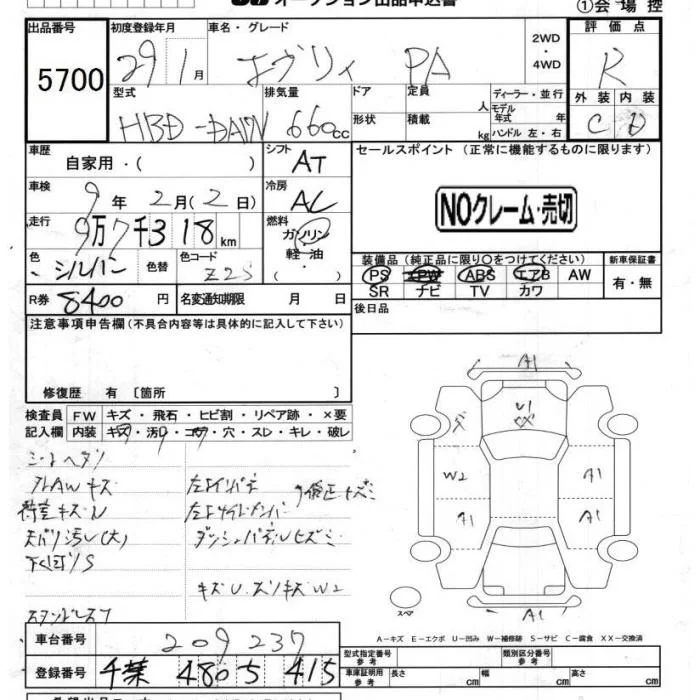 オークション出品申込書
①会場控
出品番号
5700
初度登録年月
29 1月
車名・グレード
エブリィ PA
2WD
・
4WD
評価点
R
外装 内装
C D
型式
HBD-DA17V
排気量
660cc
ドア
形状
定員 人
積載 kg
ディーラー・並行
モデル
年式 年
ハンドル 左・右
車歴
自家用・( )
シフト
AT
セールスポイント (正常に機能するものに限ります)
NOクレーム・売切
車検
9年 2月(2日)
冷房
AC
走行
9万7千318km
燃料
ガソリン
軽・油
( )
色
シルバー
色替
色コード
Z2S
装備品 (純正品に限り○をつけてください)
PS PW ABS エアB AW
SR ナビ TV カワ
新車保証書
有・無
R券 8400円
名変通知期限 月 日
後日品
注意事項申告欄(不具合内容等は具体的に記入して下さい)
修復歴 有 〔箇所 〕
検査員 FW キズ・飛石・ヒビ割・リペア跡・×要
記入欄 内装 キズ・汚リ・コゲ・穴・スレ・キレ・破レ
シートヘタリ
荷室キズU
天バリ汚レ(大)
下廻りS
左サイドメンバー
キズU
W2
A1
U1
W2
A1
A1
A1
A1
スペア
A-キズ E-エクボ U-凹み W-補修跡 S-サビ C-腐食 XX-交換済
車台番号
209237
登録番号
千葉 480 5 415
型式指定番号
参考
類別区分番号
参考
車庫証明用
参考
長さ cm
幅 cm
高さ cm